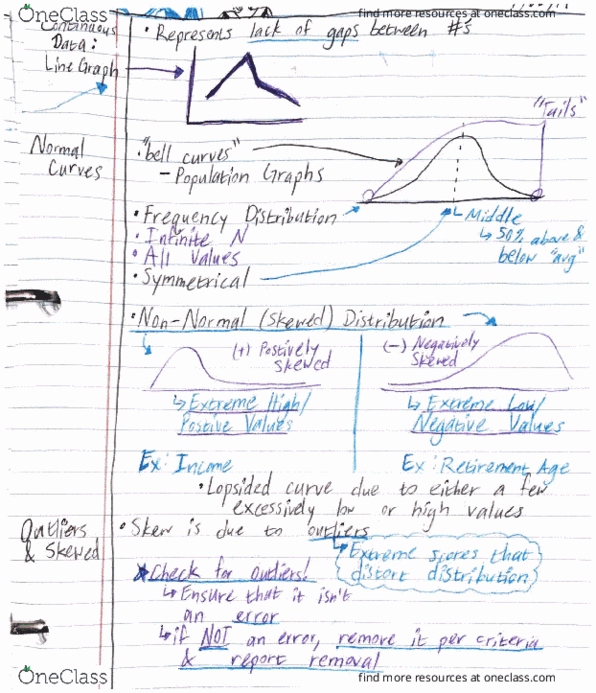 OneClass
find more resources at oneclass.com
Continuous
Data:
Line Graph
• Represents lack of gaps between #'s
"Tails"
Normal
Curves
• "bell curves"
- Population Graphs
• Frequency Distribution
• Infinite N
• All Values
• Symmetrical
Middle
↳ 50% above &
below "avg"
• Non-Normal (Skewed) Distribution
(+) Postively
Skewed
(-) Negatively
Skewed
↳ Extreme High/
Postive Values
↳ Extreme Low/
Negative Values
Ex: Income
Ex: Retirement Age
• Lopsided curve due to either a few
excessively low or high values
Outliers
& Skewed
• Skew is due to outliers
↳ Extreme scores that
distort distribution
* Check for outliers!
↳ Ensure that it isn't
an error
↳ if NOT an error, remove it per criteria
& report removal
OneClass
find more resources at oneclass.com